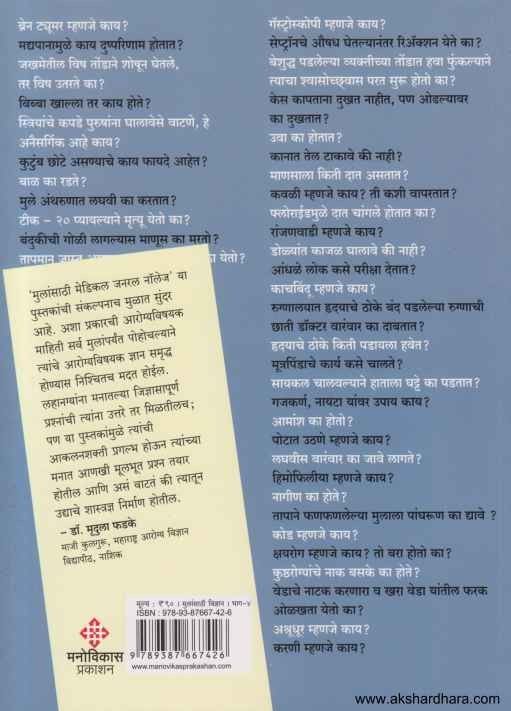 ब्रेन ट्यूमर म्हणजे काय?
मद्यपानामुळे काय दुष्परिणाम होतात?
जखमेतील विष तोंडाने शोषून घेतले,
तर विष उतरते का?
बिब्बा खाल्ला तर काय होते?
स्त्रियांचे कपडे पुरुषांना घालावेसे वाटणे, हे
अनैसर्गिक आहे काय?
कुटुंब छोटे असण्याचे काय फायदे आहेत?
बाळ का रडते?
मुले अंथरुणात लघवी का करतात?
टीक – २० प्यायल्याने मृत्यू येतो का?
बंदुकीची गोळी लागल्यास माणूस का मरतो?
तापमान जास्त का येतो?
'मुलांसाठी मेडिकल जनरल नॉलेज' या
पुस्तकांची संकल्पनाच मुळात सुंदर
आहे. अशा प्रकारची आरोग्यविषयक
माहिती सर्व मुलांपर्यंत पोहोचल्याने
त्यांचे आरोग्यविषयक ज्ञान समृद्ध
होण्यास निश्चितच मदत होईल.
लहानग्यांना मनातल्या जिज्ञासापूर्ण
प्रश्नांची त्यांना उत्तरे तर मिळतीलच;
पण या पुस्तकांमुळे त्यांची
आकलनशक्ती प्रगल्भ होऊन त्यांच्या
मनात आणखी मूलभूत प्रश्न तयार
होतील आणि असं वाटतं की त्यातून
उद्याचे शास्त्रज्ञ निर्माण होतील.
– डॉ. मृदुला फडके
माजी कुलगुरू, महाराष्ट्र आरोग्य विज्ञान
विद्यापीठ, नाशिक
मनोविकास
प्रकाशन
मूल्य : ₹ ९० । मुलांसाठी विज्ञान । भाग-४
ISBN : 978-93-87667-42-6
9 789387 667426
www.manovikasprakashan.com
गॅस्ट्रोस्कोपी म्हणजे काय?
सेप्ट्रॉनचे औषध घेतल्यानंतर रिॲक्शन येते का?
बेशुद्ध पडलेल्या व्यक्तीच्या तोंडात हवा फुंकल्याने
त्याचा श्वासोच्छ्वास परत सुरू होतो का?
केस कापताना दुखत नाहीत, पण ओढल्यावर
का दुखतात?
उवा का होतात?
कानात तेल टाकावे की नाही?
माणसाला किती दात असतात?
कवळी म्हणजे काय? ती कशी वापरतात?
फ्लोराईडमुळे दात चांगले होतात का?
रांजणवाडी म्हणजे काय?
डोळ्यांत काजळ घालावे की नाही?
आंधळे लोक कसे परीक्षा देतात?
काचबिंदू म्हणजे काय?
रुग्णालयात हृदयाचे ठोके बंद पडलेल्या रुग्णाची
छाती डॉक्टर वारंवार का दाबतात?
हृदयाचे ठोके किती पडावला हवेत?
मूत्रपिंडाचे कार्य कसे चालते?
सायकल चालवल्याने हाताला घट्टे का पडतात?
गजकर्ण, नायटा यांवर उपाय काय?
आमांश का होतो?
पोटात उठणे म्हणजे काय?
लघवीस वारंवार का जावे लागते?
हिमोफिलीया म्हणजे काय?
नागीण का होते?
तापाने फणफणलेल्या मुलाला पांघरूण का द्यावे ?
कोड म्हणजे काय?
क्षयरोग म्हणजे काय? तो बरा होतो का?
कुष्ठरोग्यांचे नाक बसके का होते?
वेडाचे नाटक करणारा व खरा वेडा यांतील फरक
ओळखता येतो का?
अश्रुधूर म्हणजे काय?
करणी म्हणजे काय?
www.akshardhara.com